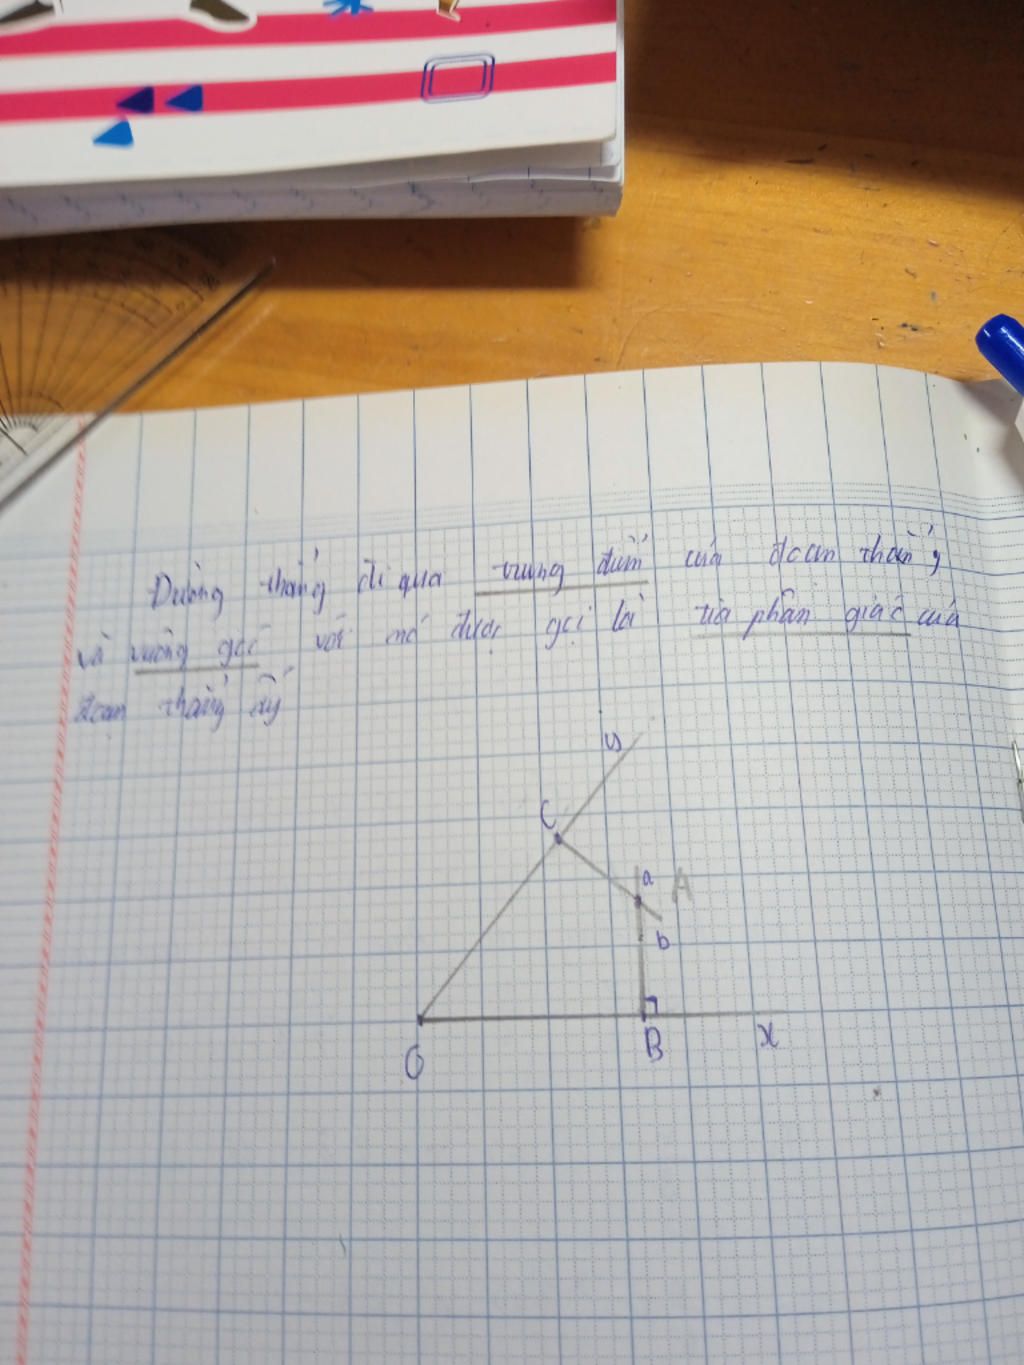 Đường thẳng đi qua trung điểm của đoạn thẳng
và vuông góc với nó được gọi là tia phân giác của
đoạn thẳng ấy
y
C
a A
b
O B x